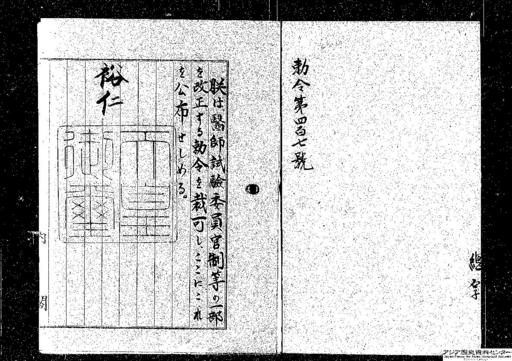 勅令第四百七號
朕は醫師試驗委員官制等の一部
を改正する勅令を裁可し、ここにこれ
を公布せしめる。
裕仁
天皇
御璽
内閣
アジア歴史資料センター